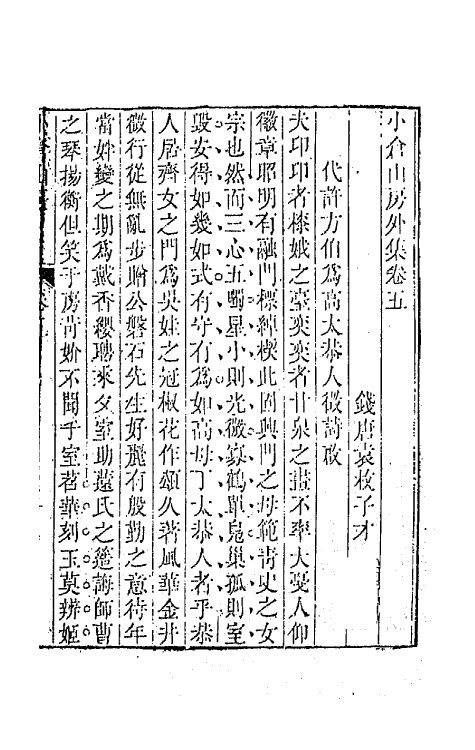 小倉山房外集卷五
錢唐袁枚子才
代許方伯爲高太恭人徵詩啟
夫印印者榛娥之臺奕奕者甘泉之畫不率大戞人仰
徽章昭明有融門標綽楔此固興門之母範靑史之女
宗也然而三心五噣星小則光微寡鶴單鳧巢孤則室
毀安得如幾如式有守有爲如高母丁太恭人者乎恭
人居齊女之門爲吳娃之冠椒花作頌久著風華金井
微行從無亂步贈公磐石先生好麗有殷勤之意待年
當姅變之期爲戴香纓聘來夕室助薳氏之簉誨師曹
之琴揚衡但笑于房靑妎不聞于室苕華刻玉莫辨姬